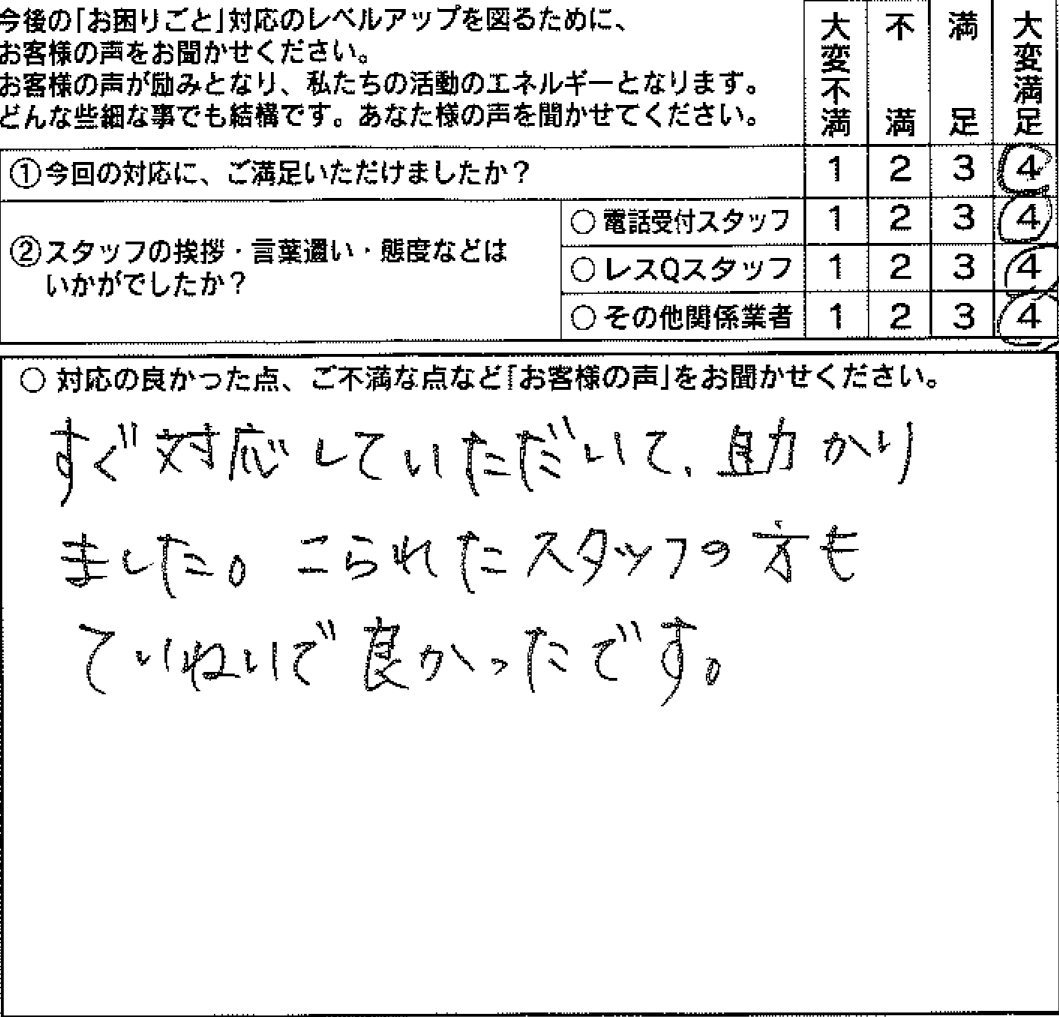 今後の「お困りごと」対応のレベルアップを図るために、
お客様の声をお聞かせください。
お客様の声が励みとなり、私たちの活動のエネルギーとなります。
どんな些細な事でも結構です。あなた様の声を聞かせてください。
大変不満 不満 満足 大変満足
①今回の対応に、ご満足いただけましたか？ 1 2 3 4
②スタッフの挨拶・言葉遣い・態度などは
いかがでしたか？
○電話受付スタッフ 1 2 3 4
○レスQスタッフ 1 2 3 4
○その他関係業者 1 2 3 4
○対応の良かった点、ご不満な点など「お客様の声」をお聞かせください。
すぐ対応していただいて、助かり
ました。こられたスタッフの方も
ていねいで良かったです。